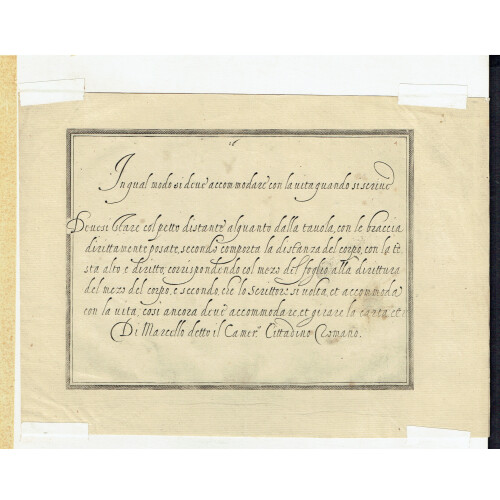 16
In qual modo si deve accommodare con la vita quando si scrive
Devesi stare col petto distante alquanto dalla tavola, con le braccia
dirittamente posate, secondo comporta la distanza del corpo, con la te
sta alto e diritto, corrispondendo col mezo del foglio alla dirittura
del mezo del corpo, e secondo, che lo Scrittore si volta, et accommoda
con la vita, cosi ancora deve accommodare, et girare la carta etc
Di Marcello detto il Camer.º Cittadino Romano.